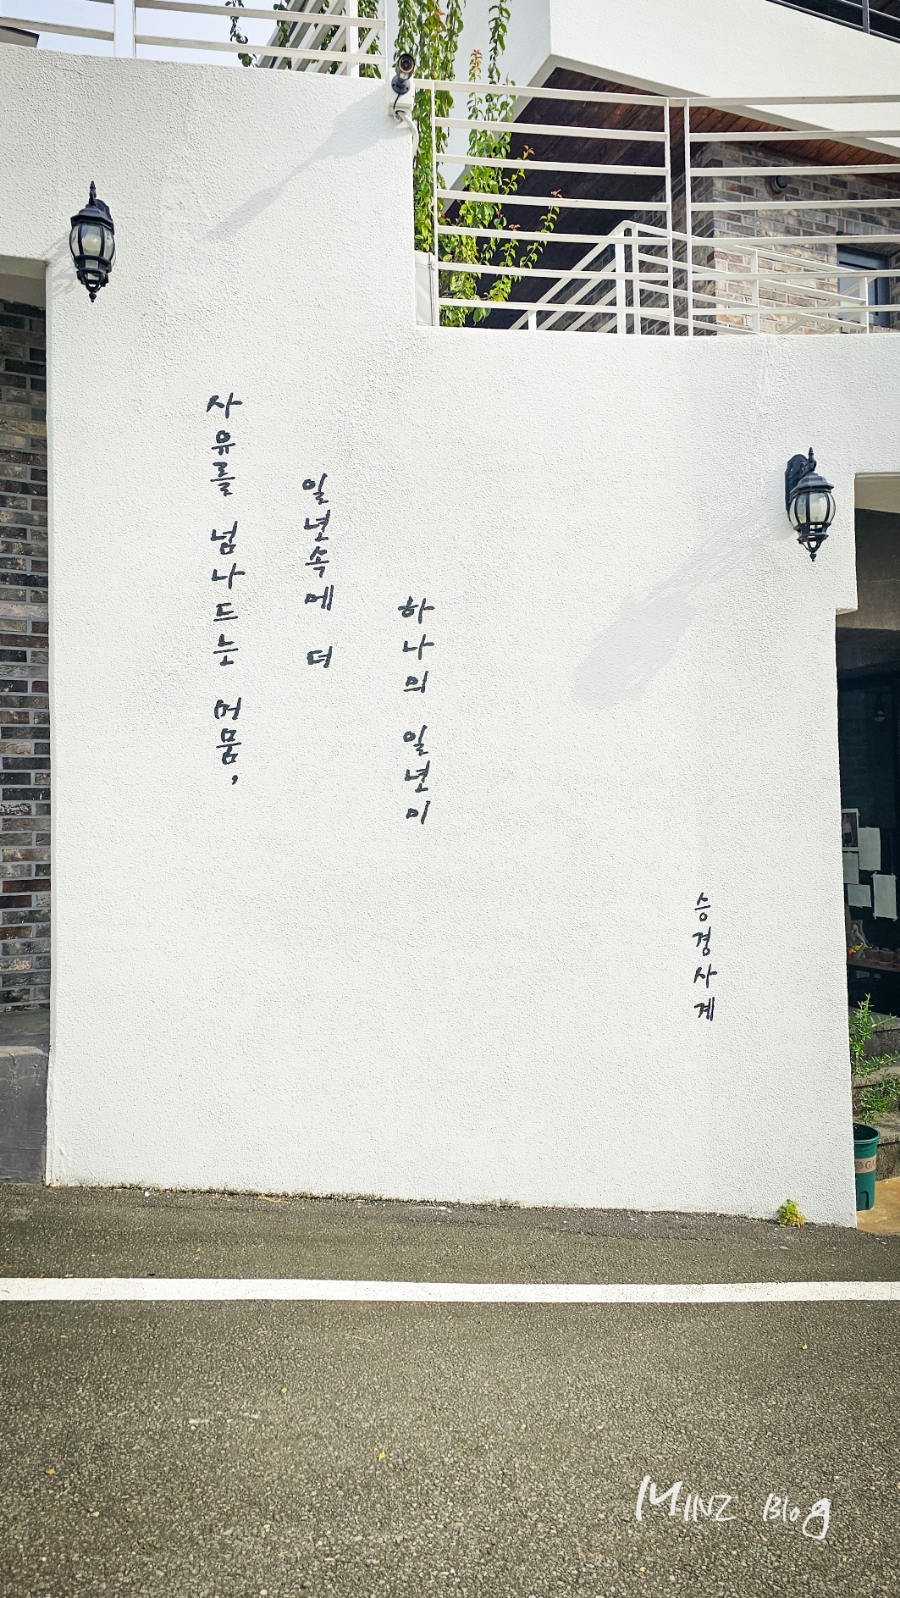 사유를 넘나드는 머뭄,
일년속에 더
하나의 일년이
승경사계
MINZ Blog